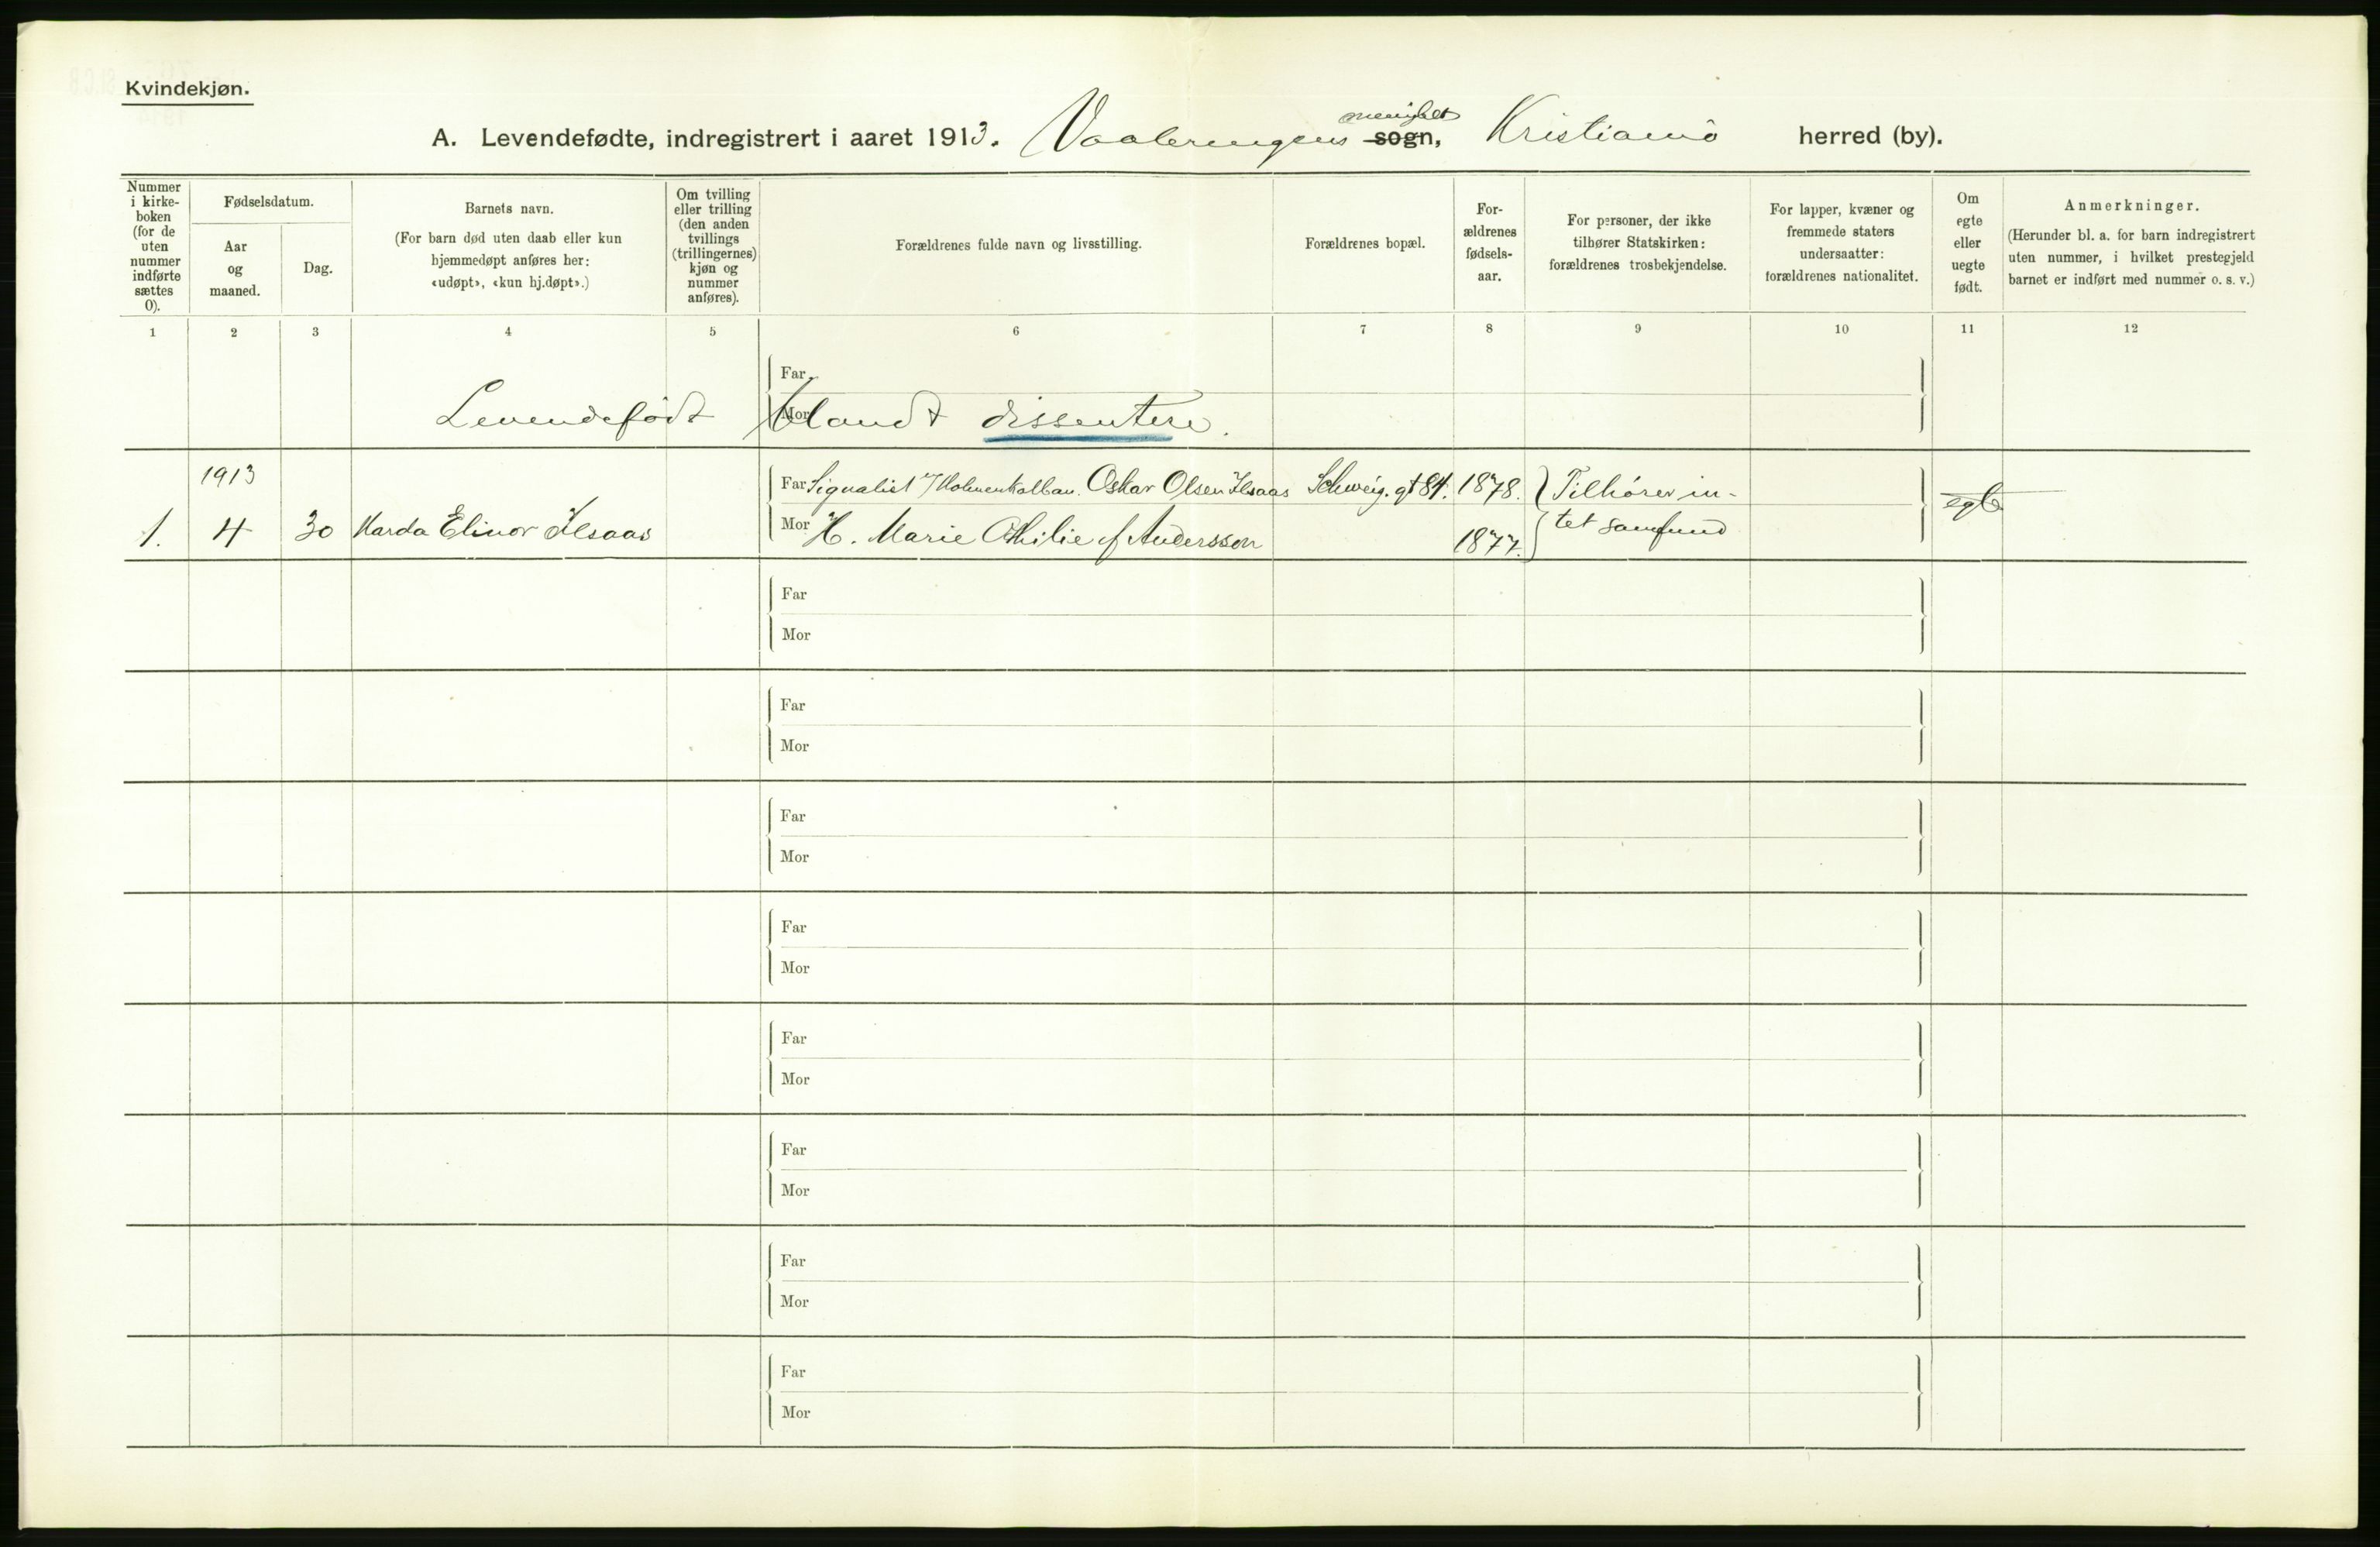 Kvindekjøn.
menighet
A. Levendefødte, indregistrert i aaret 1913. Vaalerengens sogn, Kristiania herred (by).
Nummer i kirke-boken (for de uten nummer indførte sættes 0).
Fødselsdatum.
Aar og maaned.
Dag.
Barnets navn.
(For barn død uten daab eller kun hjemmedøpt anføres her: «udøpt», «kun hj.døpt».)
Om tvilling eller trilling (den anden tvillings (trillingernes) kjøn og nummer anføres).
Forældrenes fulde navn og livsstilling.
Forældrenes bopæl.
For-ældrenes fødsels-aar.
For personer, der ikke tilhører Statskirken: forældrenes trosbekjendelse.
For lapper, kvæner og fremmede staters undersaatter: forældrenes nationalitet.
Om egte eller uegte født.
Anmerkninger.
(Herunder bl. a. for barn indregistrert uten nummer, i hvilket prestegjeld barnet er indført med nummer o. s. v.)
1 2 3 4 5 6 7 8 9 10 11 12
Far
Mor
Levendefødt blandt dissentere.
1913
Far Signalist v/Holmenkolban. Oskar Olsen Ilsaas Schweig. gt 84. 1878. Tilhører in-
egte
1. 4 30 Harda Elinor Ilsaas
Mor H. Marie Othilie f Andersson 1877. tet samfund
Far
Mor
Far
Mor
Far
Mor
Far
Mor
Far
Mor
Far
Mor
Far
Mor
Far
Mor